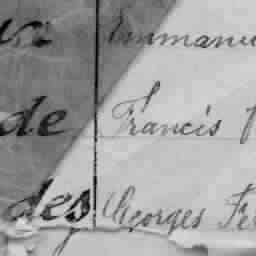 Emmanu
de Francis
des Georges Fr